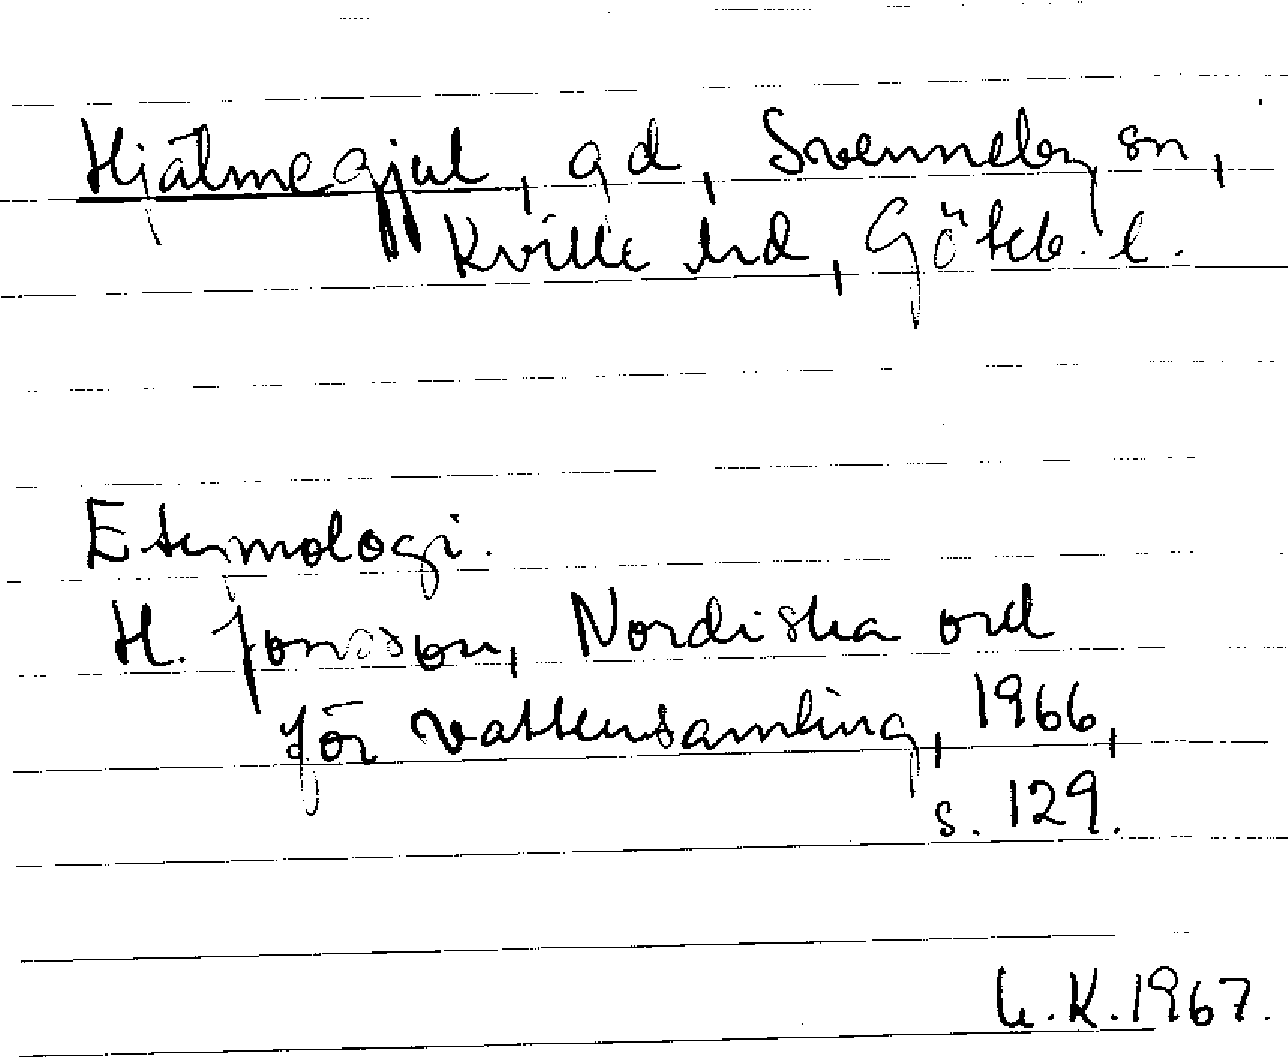 Hjälmegjul, gd, Svenneby sn,
Kville hd, Göteb. l.
Etymologi.
H. Jonsson, Nordiska ord
för vattensamling, 1966,
s. 129.
K. 1967.